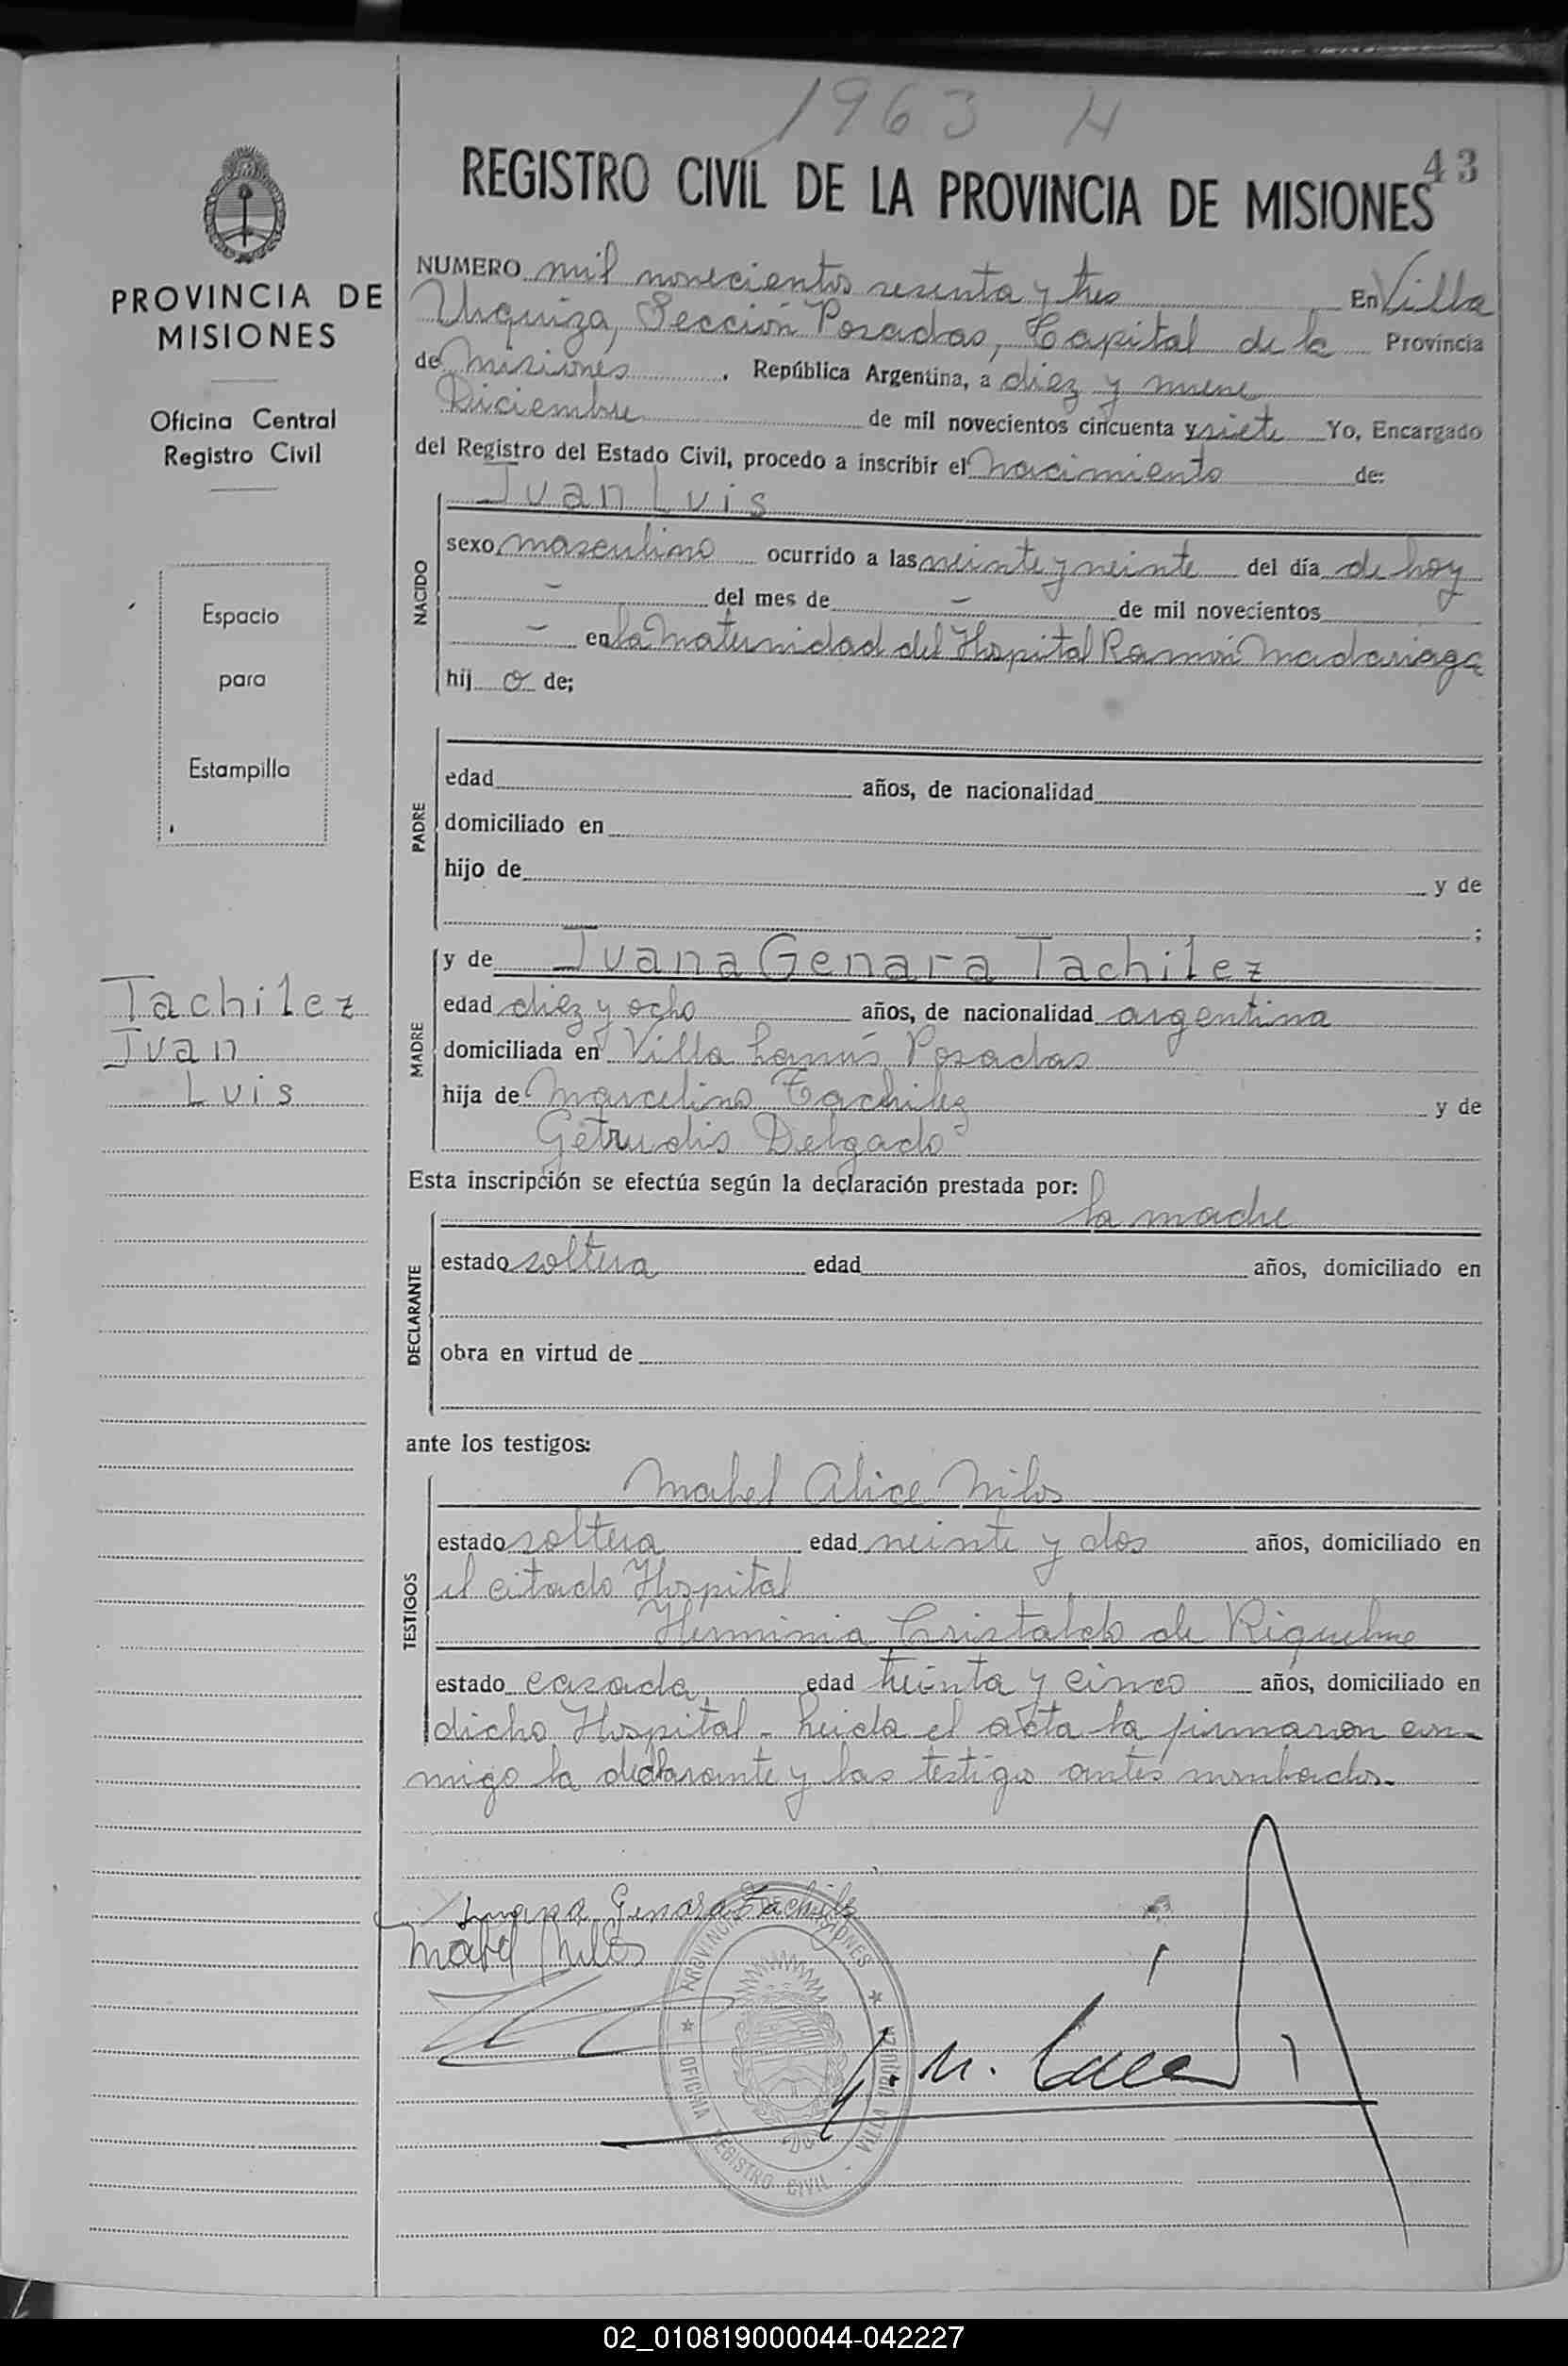 1963 H
43
REGISTRO CIVIL DE LA PROVINCIA DE MISIONES
PROVINCIA DE
MISIONES
Oficina Central
Registro Civil
Espacio
para
Estampilla
Tachilez
Juan
Luis
NUMERO mil novecientos sesenta y tres En Villa
Urquiza, Sección Posadas, Capital de la Provincia
de Misiones, República Argentina, a diez y nueve
Diciembre de mil novecientos cincuenta y siete Yo, Encargado
del Registro del Estado Civil, procedo a inscribir el nacimiento de:
Juan Luis
NACIDO
sexo masculino ocurrido a las veinte y veinte del día de hoy
- del mes de - de mil novecientos
- en la Maternidad del Hospital Ramón Madariaga
hij o de;
PADRE
edad años, de nacionalidad
domiciliado en
hijo de y de
;
MADRE
y de Juana Genara Tachilez
edad diez y ocho años, de nacionalidad argentina
domiciliada en Villa Lanús Posadas
hija de Marcelino Tachilez y de
Getrudis Delgado
Esta inscripción se efectúa según la declaración prestada por:
la madre
DECLARANTE
estado soltera edad años, domiciliado en
obra en virtud de
ante los testigos:
TESTIGOS
Mabel Alice Milos
estado soltera edad veinte y dos años, domiciliado en
el citado Hospital
Herminia Cristaldo de Riquelme
estado casada edad treinta y cinco años, domiciliado en
dicho Hospital - Leida el acta la firmaron con-
migo la declarante y las testigos antes nombrados.-
Juana Genara Tachilez
Mabel Milos
PROVINCIA DE MISIONES
OFICINA REGISTRO CIVIL - VILLA URQUIZA
02_010819000044-042227